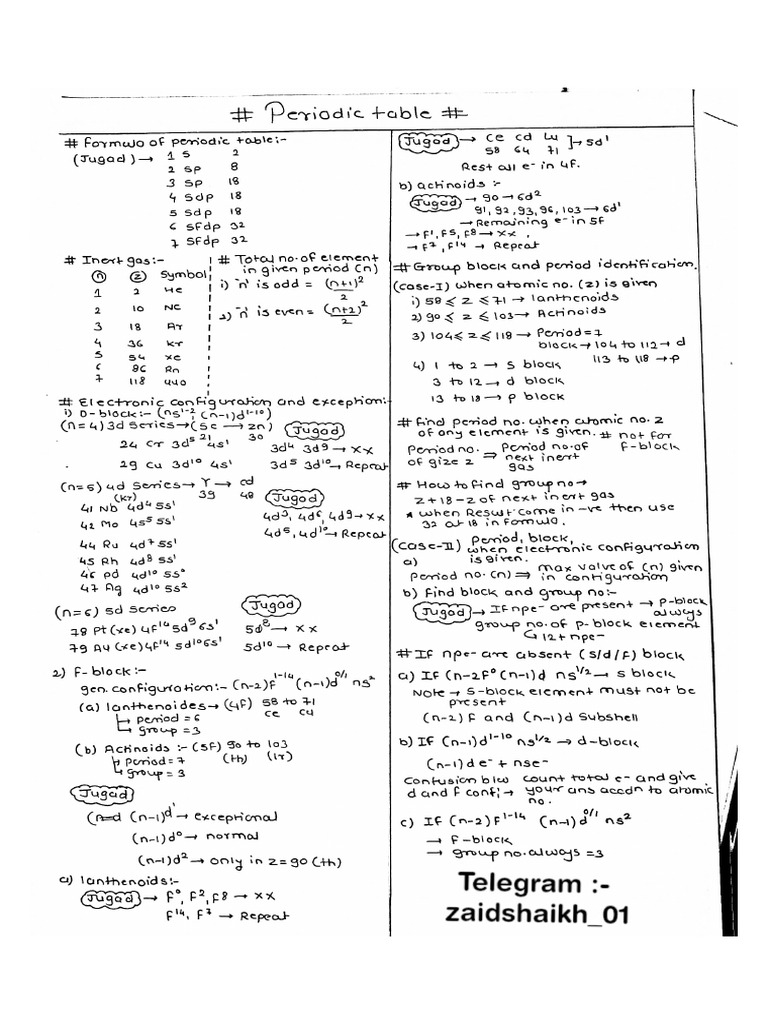 # Periodic table #
# Formula of periodic table:-
(Jugad) → 1 S 2
2 SP 8
3 SP 18
4 Sdp 18
5 Sdp 18
6 SFdp 32
7 SFdp 32
# Inert gas:-
n Z Symbol
1 2 He
2 10 Ne
3 18 Ar
4 36 Kr
5 54 xe
6 86 Rn
7 118 uuo
# Total no. of element
in given period (n)
1) 'n' is odd = (n+1)²/2
2) 'n' is even = (n+2)²/2
# Electronic configuration and exception:-
1) D-block:- (ns¹⁻², (n-1)d¹⁻¹⁰)
(n=4) 3d series → (Sc → Zn)
21 30
24 Cr 3d⁵ 4s¹
29 Cu 3d¹⁰ 4s¹
Jugad
3d⁴ 3d⁹ → xx
3d⁵ 3d¹⁰ → Repeat
(n=5) 4d series → Y → cd
(Kr) 39 48
41 Nb 4d⁴ 5s¹
42 Mo 4s⁵ 5s¹
44 Ru 4d⁷ 5s¹
45 Rh 4d⁸ 5s¹
46 Pd 4d¹⁰ 5s⁰
47 Ag 4d¹⁰ 5s²
Jugad
4d³, 4d⁶, 4d⁹ → xx
4d⁵, 4d¹⁰ → Repeat
(n=6) 5d series
78 Pt (xe) 4f¹⁴ 5d⁹ 6s¹
79 Au (xe) 4f¹⁴ 5d¹⁰ 6s¹
Jugad
5d⁸ → xx
5d¹⁰ → Repeat
2) F-block:-
gen. configuration:- (n-2)f¹⁻¹⁴ (n-1)d⁰/¹ ns²
(a) lanthenoides → (4F) 58 to 71
Ce
↳ period = 6
↳ Group = 3
(b) Actinoids :- (5F) 90 to 103
(th) (lr)
↳ Period = 7
↳ Group = 3
Jugad
(n-1)d¹ → exceptional
(n-1)d⁰ → normal
(n-1)d² → only in Z=90 (th)
a) lanthenoids:-
Jugad → F⁰, F², F⁸ → xx
F¹⁴, F⁷ → Repeat
Jugad → Ce Cd Lu ] → 5d¹
58 64 71
Rest all e⁻ in 4F.
b) actinoids :-
Jugad → 90 → 6d²
91, 92, 93, 96, 103 → 6d¹
→ Remaining e⁻ in 5F
→ F¹, F⁵, F⁸ → xx,
→ F⁷, F¹⁴ → Repeat
# Group block and period identification.
(case-I) when atomic no. (z) is given
1) 58 ≤ Z ≤ 71 → lanthenoids
2) 90 ≤ Z ≤ 103 → Actinoids
3) 104 ≤ Z ≤ 118 → Period = 7
block → 104 to 112 → d
113 to 118 → p
4) 1 to 2 → S block
3 to 12 → d block
13 to 18 → p block
# find period no. when atomic no. z
of any element is given. # not for
F-block
Period no. of gize z ⇒ Period no. of next inert gas
# How to find group no →
Z + 18 - Z of next inert gas
* when Result come in -ve then use
32 at 18 in formula.
(case-II) Period, block,
when electronic configuration
is given.
a) Period no. (n) ⇒ max value of (n) given
in configuration
b) find block and group no:-
Jugad → If npe⁻ are present → p-block
always
group no. of p-block element
↳ 12 + npe⁻
# If npe⁻ are absent (S/d/F) block
a) If (n-2F⁰ (n-1)d ns¹/² → s block
Note → S-block element must not be
present
(n-2) F and (n-1)d Subshell
b) If (n-1)d¹⁻¹⁰ ns¹/² → d-block
(n-1)d e⁻ + nse⁻
Confusion b/w count total e⁻ and give
d and f conf; → your ans accdn to atomic
no.
c) If (n-2)F¹⁻¹⁴ (n-1)d⁰/¹ ns²
→ F-block
→ group no. always = 3
Telegram :-
zaidshaikh_01